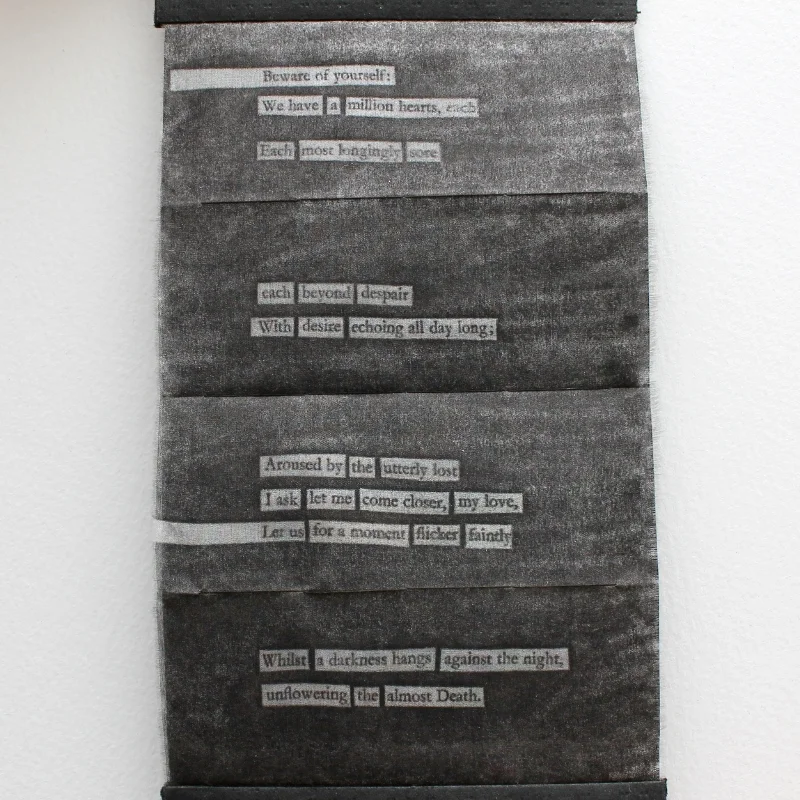 Beware of yourself:
We have a million hearts, each
Each most longingly sore
each beyond despair
With desire echoing all day long;
Aroused by the utterly lost
I ask let me come closer, my love,
Let us for a moment flicker faintly
Whilst a darkness hangs against the night,
unflowering the almost Death.